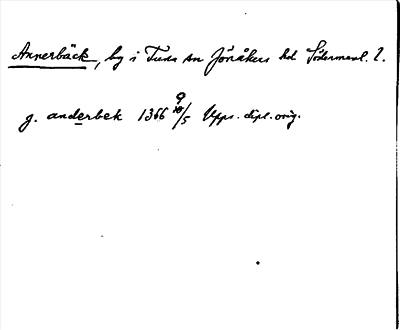 Annerbäck, by i Tuna sn Jönåkers hd Södermanl. l.
g. anderbek 1366 9/5 Upps. dipl. orig.